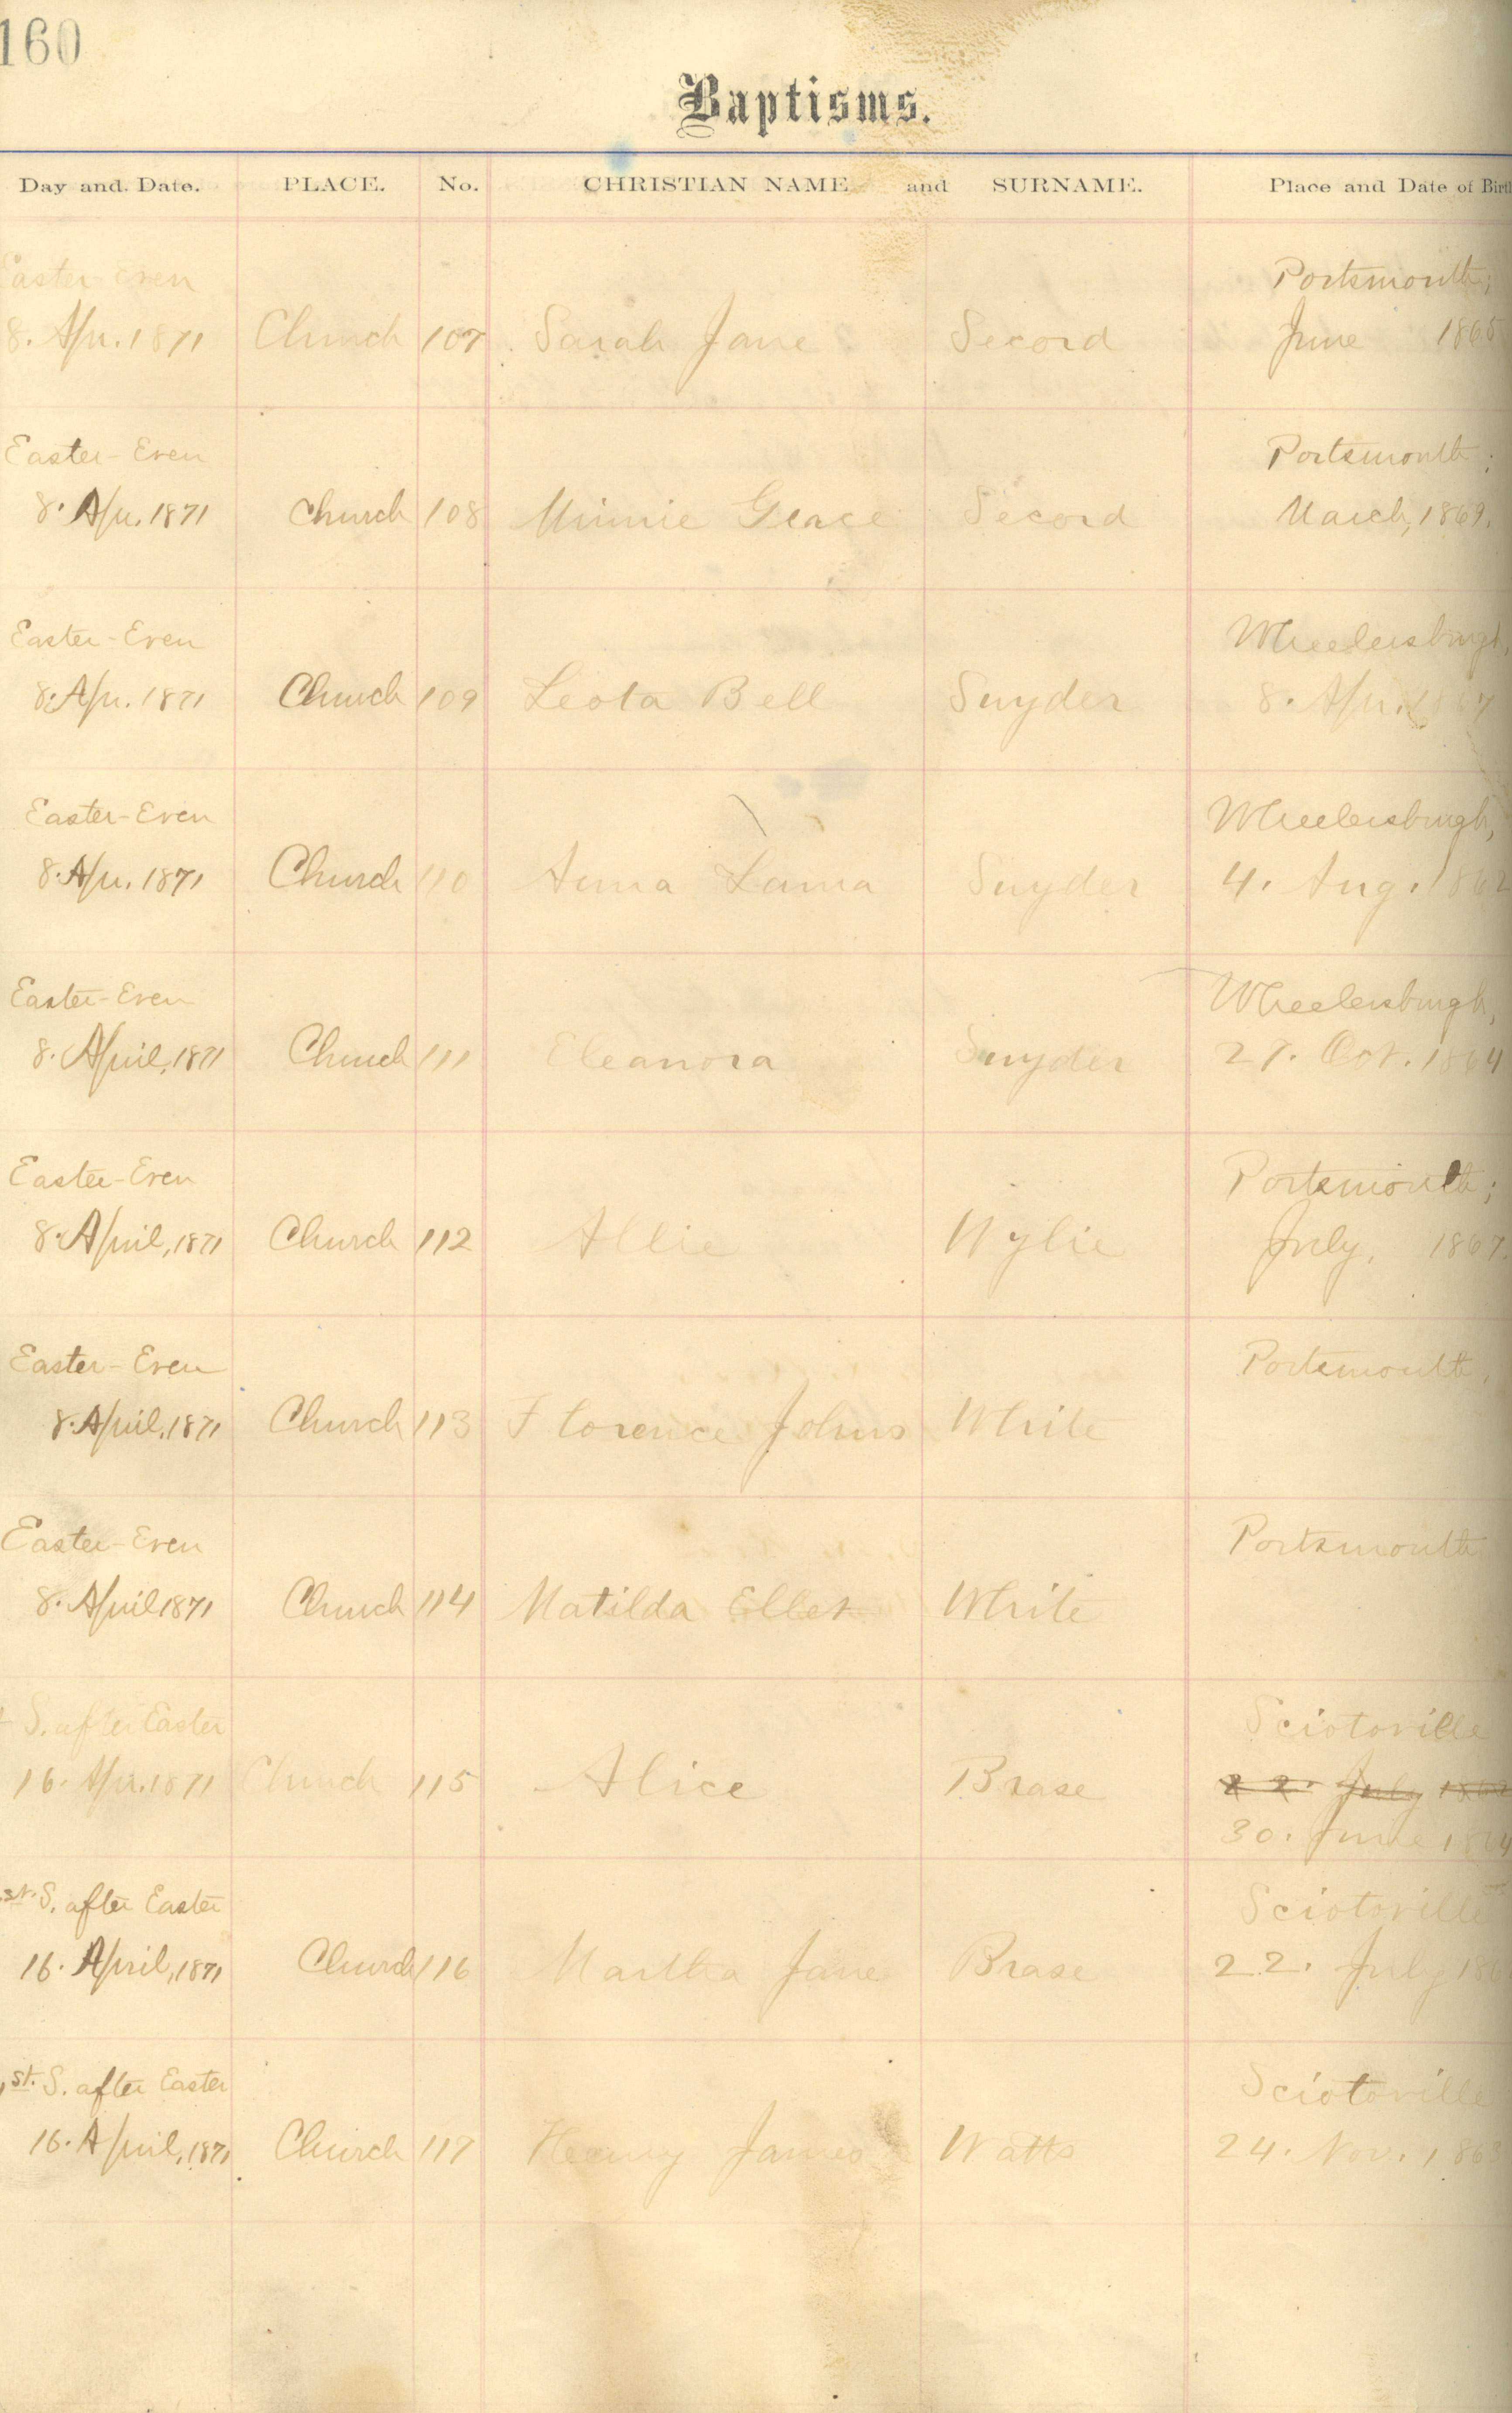 160
Baptisms.
Day and Date. PLACE. No. CHRISTIAN NAME and SURNAME. Place and Date of Birth
Easter Even Portsmouth;
8. Apr. 1871 Church 107 Sarah Jane Secord June 1865
Easter-Even Portsmouth;
8. Apr. 1871 Church 108 Minnie Grace Secord March, 1869.
Easter-Even Wheelersburgh,
8. Apr. 1871 Church 109 Leota Bell Snyder 8. Apr. 1867
Easter-Even Wheelersburgh,
8. Apr. 1871 Church 110 Anna Laura Snyder 4. Aug. 1862
Easter-Even Wheelersburgh,
8. April, 1871 Church 111 Eleanora Snyder 27. Oct. 1864
Easter-Even Portsmouth;
8. April, 1871 Church 112 Allie Wylie July, 1867.
Easter-Even Portsmouth,
8. April, 1871 Church 113 Florence Johns White
Easter-Even Portsmouth
8. April 1871 Church 114 Matilda Ellen White
S. after Easter Sciotoville
16. Apr. 1871 Church 115 Alice Brase 22. July
30. June
st. S. after Easter Sciotoville
16. April, 1871 Church 116 Martha Jane Brase 22. July
1st. S. after Easter Sciotoville
16. April, 1871 Church 117 Henry James Watts 24. Nov.